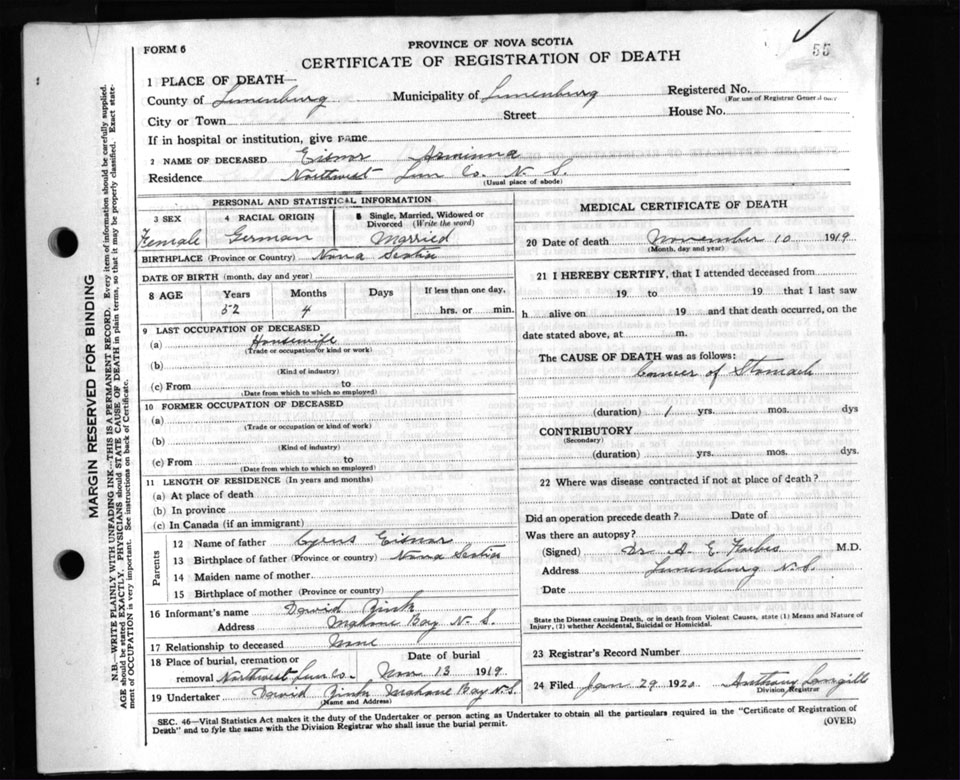 55
FORM 6
PROVINCE OF NOVA SCOTIA
CERTIFICATE OF REGISTRATION OF DEATH
1 PLACE OF DEATH—
County of Lunenburg Municipality of Lunenburg Registered No.
(For use of Registrar General only)
City or Town Street House No.
If in hospital or institution, give name
2 NAME OF DECEASED Eisnor Arminna
Residence Northwest Lun Co. N. S.
(Usual place of abode)
PERSONAL AND STATISTICAL INFORMATION
3 SEX 4 RACIAL ORIGIN 5 Single, Married, Widowed or Divorced (Write the word)
Female German Married
BIRTHPLACE (Province or Country) Nova Scotia
DATE OF BIRTH (month, day and year)
8 AGE Years Months Days If less than one day,
52 4 hrs. or min.
9 LAST OCCUPATION OF DECEASED
(a) Housewife
(Trade or occupation or kind or work)
(b)
(Kind of industry)
(c) From to
(Date from which to which so employed)
10 FORMER OCCUPATION OF DECEASED
(a)
(Trade or occupation or kind of work)
(b)
(Kind of industry)
(c) From to
(Date from which to which so employed)
11 LENGTH OF RESIDENCE (In years and months)
(a) At place of death
(b) In province
(c) In Canada (if an immigrant)
Parents
12 Name of father Cyrus Eisnor
13 Birthplace of father (Province or country) Nova Scotia
14 Maiden name of mother
15 Birthplace of mother (Province or country)
16 Informant's name David Zink
Address Mahone Bay N. S.
17 Relationship to deceased None
18 Place of burial, cremation or removal Northwest Lun Co. Date of burial Nov 13 1919
19 Undertaker David Zink Mahone Bay N.S.
(Name and Address)
MEDICAL CERTIFICATE OF DEATH
20 Date of death November 10 1919
(Month, day and year)
21 I HEREBY CERTIFY, that I attended deceased from
19 to 19 that I last saw
h alive on 19 and that death occurred, on the
date stated above, at m.
The CAUSE OF DEATH was as follows:
Cancer of Stomach
(duration) 1 yrs. mos. dys
CONTRIBUTORY
(Secondary)
(duration) yrs. mos. dys.
22 Where was disease contracted if not at place of death?
Did an operation precede death? Date of
Was there an autopsy?
(Signed) Dr. A. E. Forbes M.D.
Address Lunenburg N.S.
Date
State the Disease causing Death, or in death from Violent Causes, state (1) Means and Nature of
Injury, (2) whether Accidental, Suicidal or Homicidal.
23 Registrar's Record Number
24 Filed Jan 29 1920 Anthony Langill
Division Registrar
SEC. 46—Vital Statistics Act makes it the duty of the Undertaker or person acting as Undertaker to obtain all the particulars required in the "Certificate of Registration of
Death" and to fyle the same with the Division Registrar who shall issue the burial permit. (OVER)
MARGIN RESERVED FOR BINDING
N.B.—WRITE PLAINLY WITH UNFADING INK—THIS IS A PERMANENT RECORD. Every item of information should be carefully supplied.
AGE should be stated EXACTLY. PHYSICIANS should STATE CAUSE OF DEATH in plain terms, so that it may be properly classified. Exact state-
ment of OCCUPATION is very important. See instructions on back of Certificate.